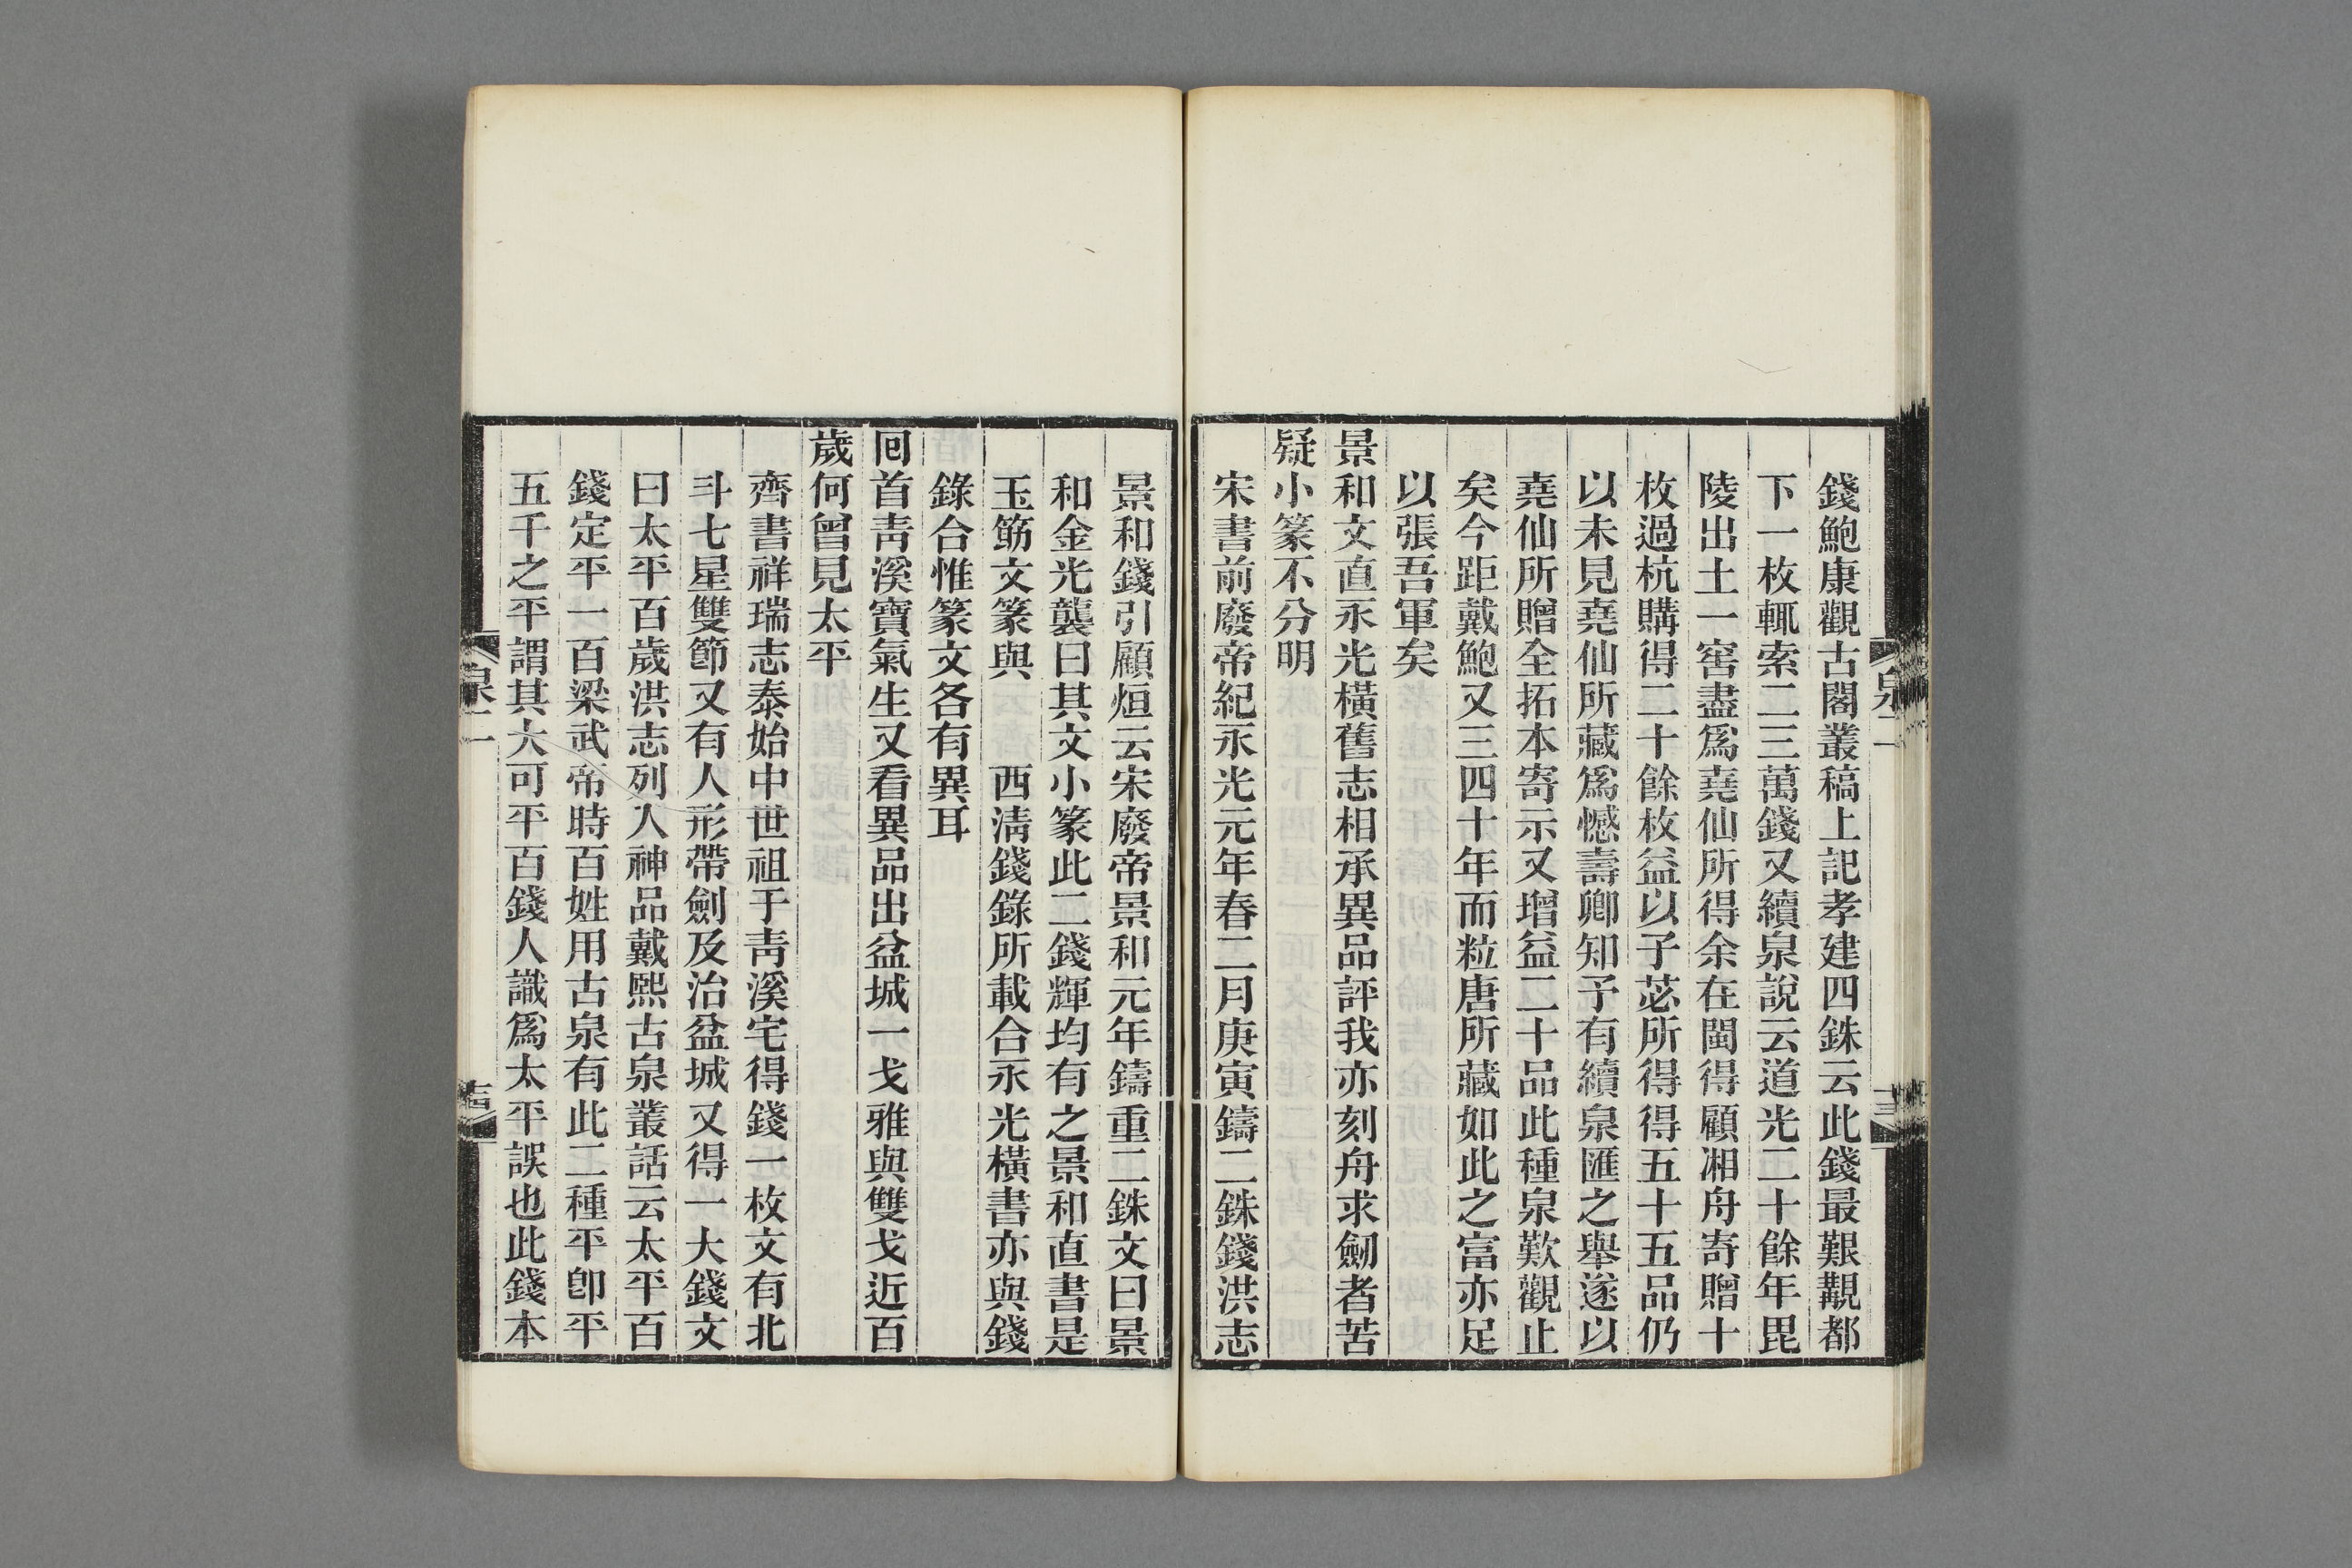 錢鮑康觀古閣叢稿上記孝建四銖云此錢最艱覯都
下一枚輒索二三萬錢又續泉說云道光二十餘年毘
陵出土一窖盡爲堯仙所得余在閩得顧湘舟寄贈十
枚過杭購得二十餘枚益以子苾所得得五十五品仍
以未見堯仙所藏爲憾壽卿知予有續泉匯之舉遂以
堯仙所贈全拓本寄示又增益二十品此種泉歎觀止
矣今距戴鮑又三四十年而粒唐所藏如此之富亦足
以張吾軍矣
景和文直永光橫舊志相承異品評我亦刻舟求劒者苦
疑小篆不分明
宋書前廢帝紀永光元年春二月庚寅鑄二銖錢洪志
景和錢引顧烜云宋廢帝景和元年鑄重二銖文曰景
和金光襲曰其文小篆此二錢輝均有之景和直書是
玉筯文篆與　西淸錢錄所載合永光橫書亦與錢
錄合惟篆文各有異耳
囘首靑溪寶氣生又看異品出盆城一戈雅與雙戈近百
歲何曾見太平
齊書祥瑞志泰始中世祖于靑溪宅得錢一枚文有北
斗七星雙節又有人形帶劍及治盆城又得一大錢文
曰太平百歲洪志列入神品戴熙古泉叢話云太平百
錢定平一百梁武帝時百姓用古泉有此二種平卽平
五千之平謂其大可平百錢人識爲太平誤也此錢本
泉二
十三
泉二
十四